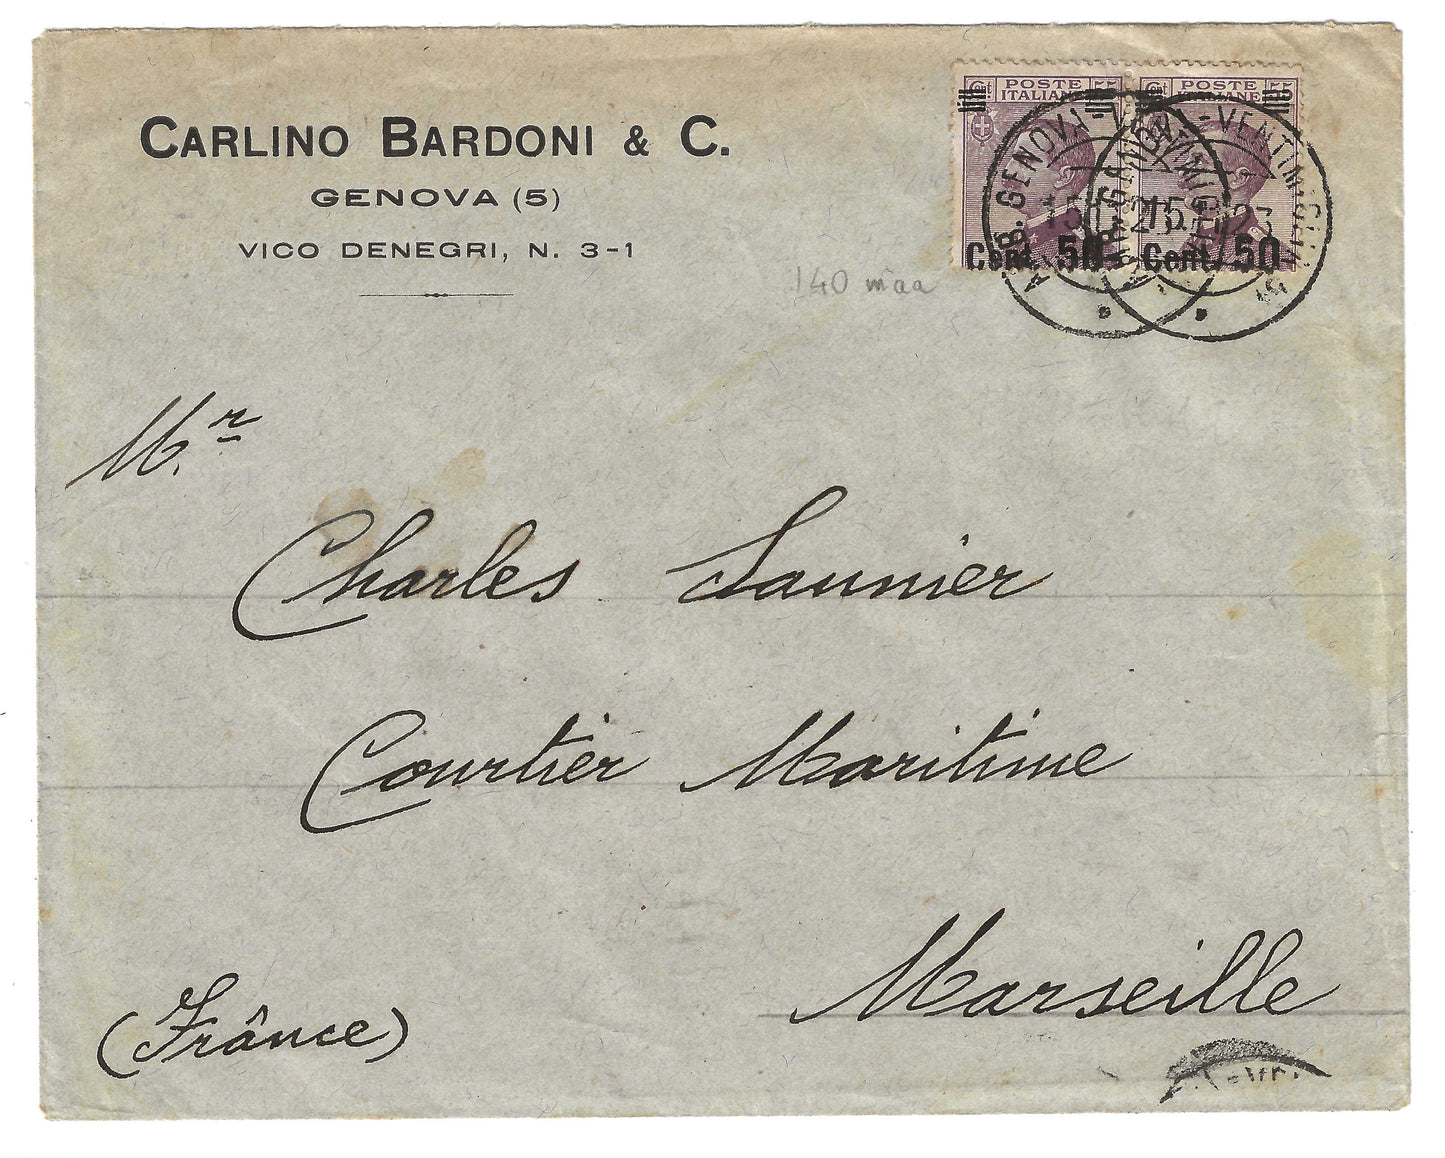 CARLINO BARDONI & C.
GENOVA (5)
VICO DENEGRI, N. 3-1
Cent 55
POSTE
ITALIANE
Cent. 50
POSTE
ITALIANE 55
Cent. 50
AMB. GENOVA-VENTIMIGLIA
140 maa
M.r
Charles Saunier
Courtier Maritime
Marseille
(Frânce)